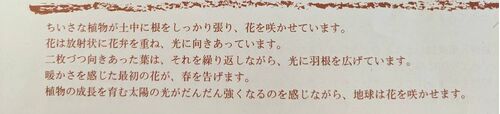 ちいさな植物が土中に根をしっかり張り、花を咲かせています。
花は放射状に花弁を重ね、光に向きあっています。
二枚づつ向きあった葉は、それを繰り返しながら、光に羽根を広げています。
暖かさを感じた最初の花が、春を告げます。
植物の成長を育む太陽の光がだんだん強くなるのを感じながら、地球は花を咲かせます。